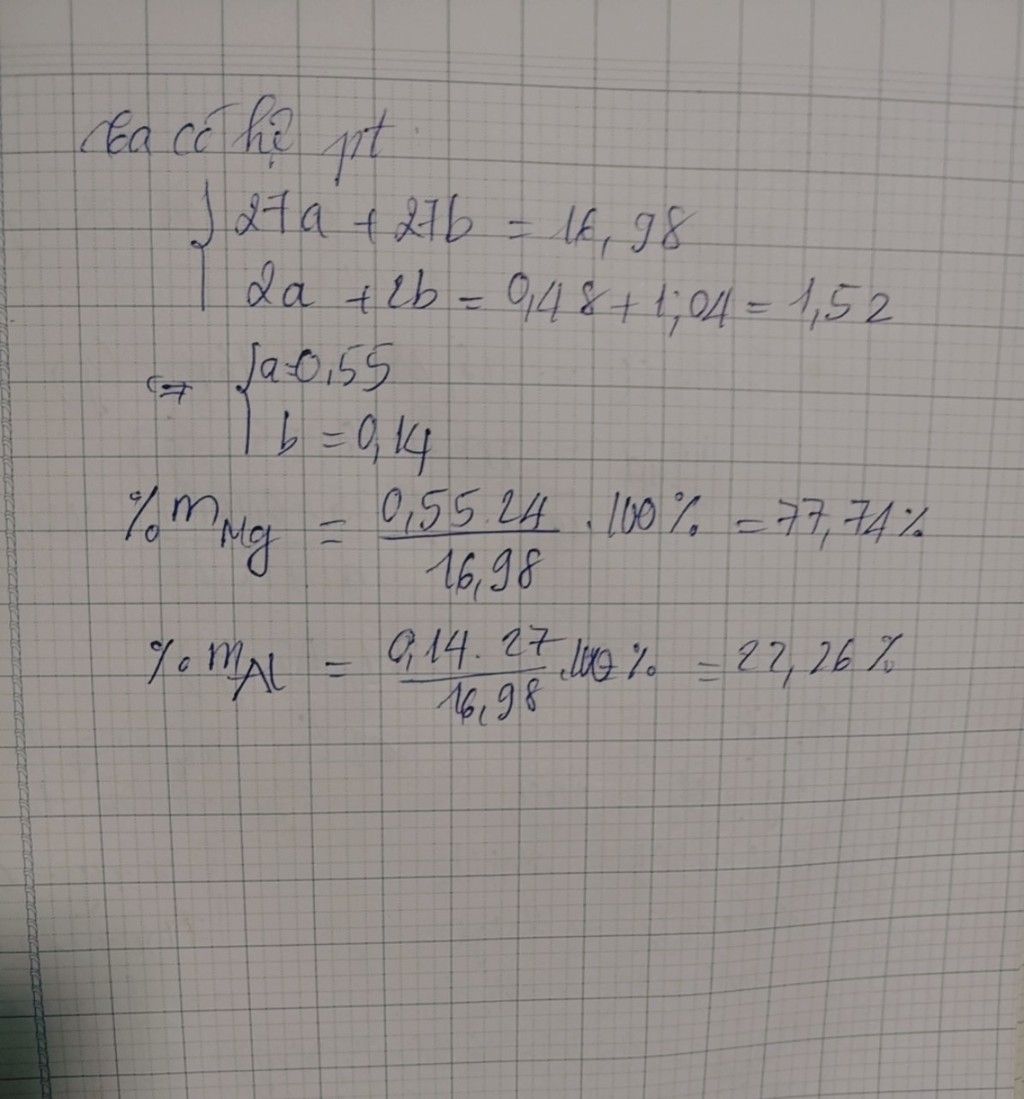 Ta có hệ pt
27a + 27b = 16,98
2a + 2b = 0,48 + 1,04 = 1,52
⇔ a = 0,55
b = 0,14
% mMg = 0,55.24 / 16,98 . 100% = 77,74%
% mAl = 0,14. 27 / 16,98 .100% = 22,26%